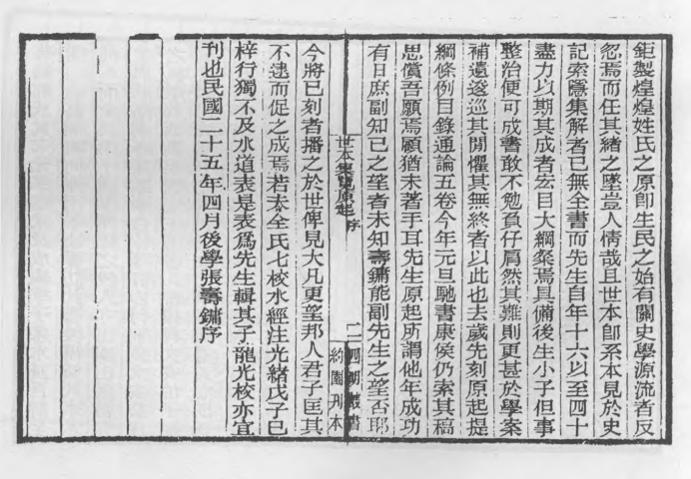 鉅製煌煌姓氏之原卽生民之始有關史學源流者反
忽焉而任其緒之墜豈人情哉且世本卽系本見於史
記索隱集解者已無全書而先生自年十六以至四十
盡力以期其成者玄目大綱粲焉具備後生小子但事
整治便可成書敢不勉負仔肩然其難則更甚於學案
補遺逡巡其閒懼其無終者以此也去歲先刻原起提
綱條例目錄通論五卷今年元旦馳書康侯仍索其稿
思償吾願焉願猶未著手耳先生原起所謂他年成功
有日庶副知己之望者未知壽鏞能副先生之望否耶
世本集覽原起 序
二
四明叢書
約園刊本
今將已刻者播之於世俾見大凡更望邦人君子匡其
不逮而促之成焉若夫全氏七校水經注光緒戊子已
梓行獨不及水道表是表爲先生輯其子龍光校亦宜
刊也民國二十五年四月後學張壽鏞序